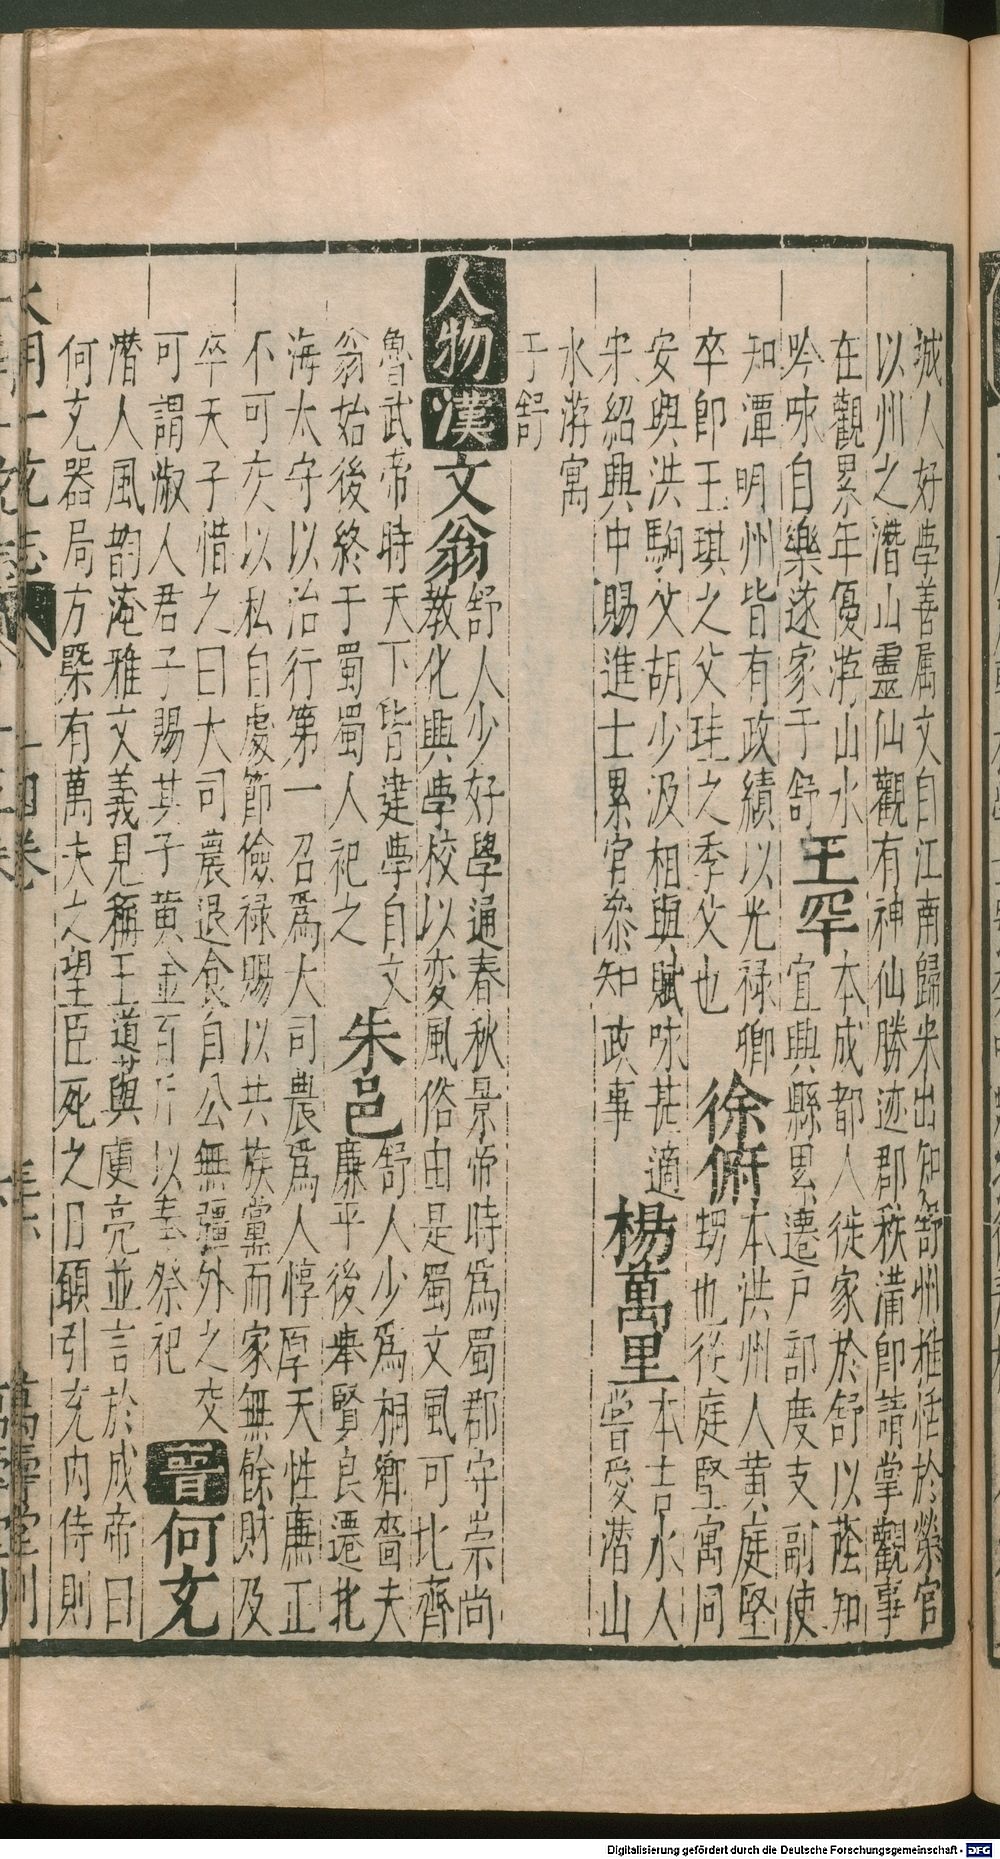 誠人好學善属文自江南歸宋出知舒州惟恬於榮官
以州之潛山靈仙觀有神仙勝迹郡秩滿卽請掌觀事
在觀累年優游山水王罕本成都人徙家於舒以蔭知
吟咏自樂遂家于舒宜興縣累遷戶部度支副使
知潭明州皆有政績以光祿卿徐俯本洪州人黄庭堅
卒卽王琪之父珪之季父也甥也從庭堅寓同
安與洪駒父胡少汲相與賦咏甚適楊萬里本吉水人
宋紹興中賜進士累官叅知政事嘗愛潛山
水游寓
于舒
人物漢文翁舒人少好學通春秋景帝時爲蜀郡守崇尚
教化興學校以変風俗由是蜀文風可比齊
魯武帝時天下皆建學自文朱邑舒人少爲桐鄉嗇夫
翁始後終于蜀蜀人祀之廉平後舉賢良遷北
海太守以治行第一召爲大司農爲人惇厚天性廉正
不可交以私自處節儉祿賜以共族黨而家無餘財及
卒天子惜之曰大司農退食自公無疆外之交晉何充
可謂淑人君子賜其子黄金百斤以奉祭祀
潛人風韵淹雅文義見稱王道與庾亮並言於成帝曰
何充器局方槩有萬夫之望臣死之日願引充内侍則
大明一統志 十四卷 萬壽堂刊